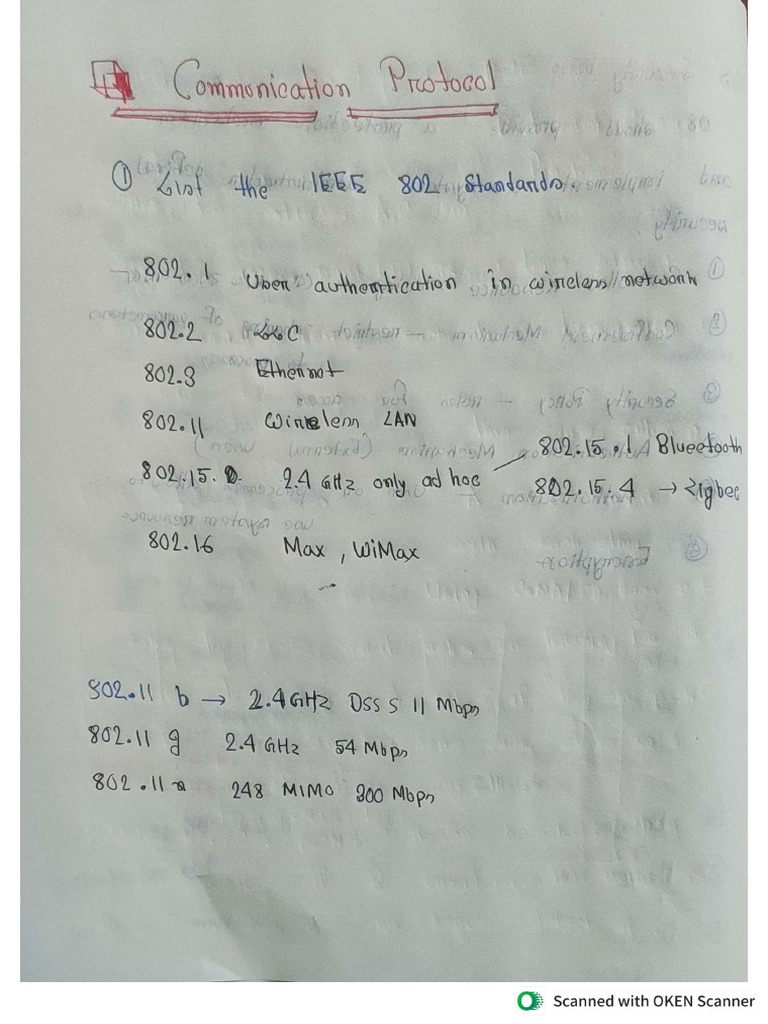 Communication Protocol
① List the IEEE 802 Standards.
802.1 User authentication in wireless network
802.2 LLC
802.3 Ethernet
802.11 Wireless LAN
802.15. 2.4 GHz only ad hoc
802.15.1 Blueetooth
802.15.4 → Zigbee
802.16 Max, WiMax
802.11 b → 2.4GHz DSSS 11 Mbps
802.11 g 2.4 GHz 54 Mbps
802.11 248 MIMO 300 Mbps
Scanned with OKEN Scanner